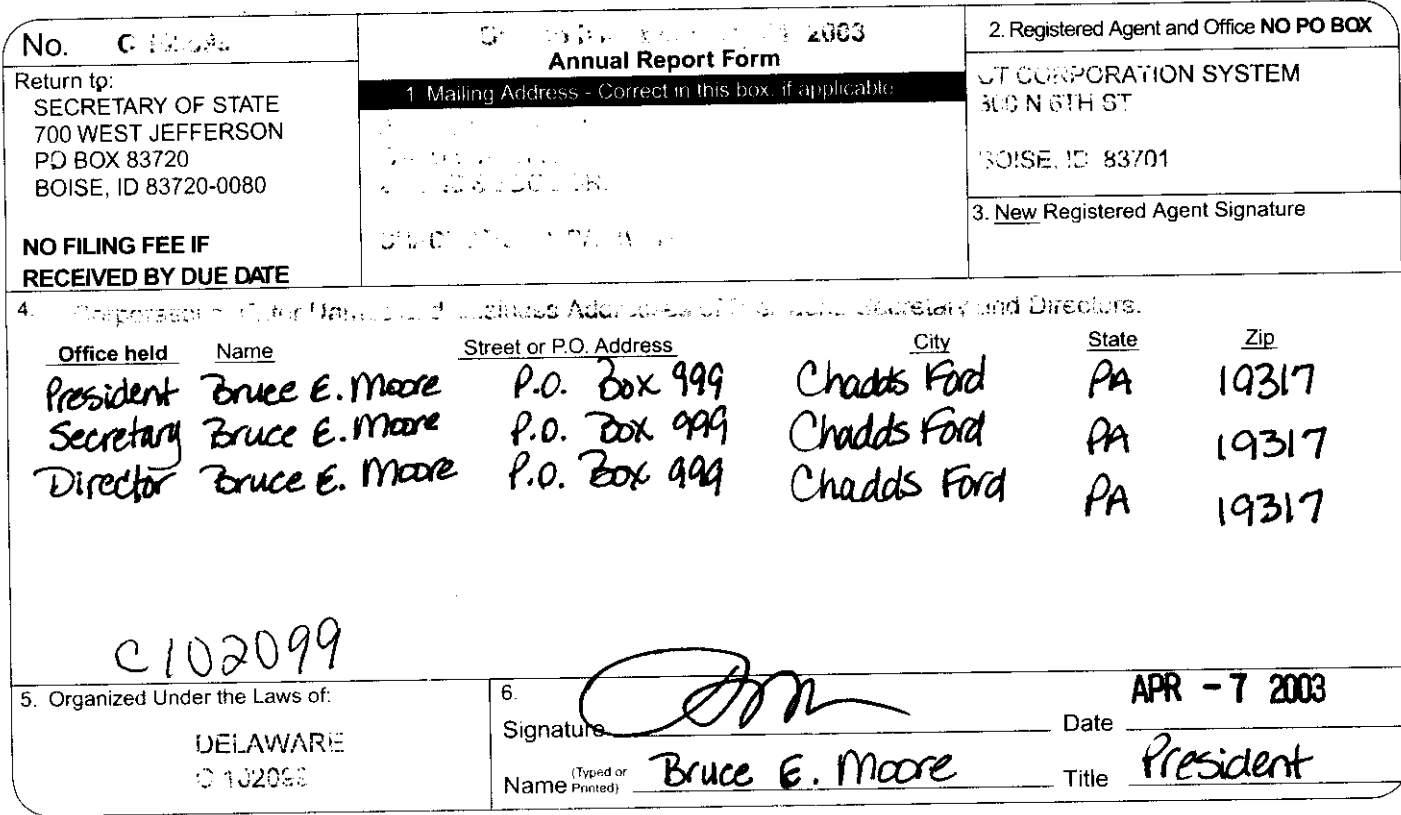 No. C
2003
Annual Report Form
2. Registered Agent and Office NO PO BOX
Return to:
SECRETARY OF STATE
700 WEST JEFFERSON
PO BOX 83720
BOISE, ID 83720-0080
NO FILING FEE IF
RECEIVED BY DUE DATE
1 Mailing Address - Correct in this box, if applicable
CT CORPORATION SYSTEM
300 N 6TH ST
BOISE, ID 83701
3. New Registered Agent Signature
4. Corporations: Enter Names and Business Addresses of President, Secretary and Directors.
Office held Name Street or P.O. Address City State Zip
President Bruce E. Moore P.O. Box 999 Chadds Ford PA 19317
Secretary Bruce E. Moore P.O. Box 999 Chadds Ford PA 19317
Director Bruce E. Moore P.O. Box 999 Chadds Ford PA 19317
C102099
5. Organized Under the Laws of:
DELAWARE
C 102099
6.
Signature
Date APR - 7 2003
Name (Typed or Printed) Bruce E. Moore Title President